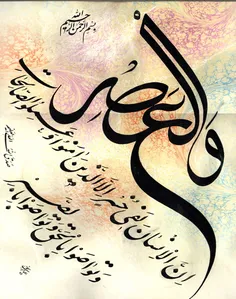 بسم الله الرحمن الرحيم
والعصر
إن الإنسان لفي خسر إلا الذين آمنوا وعملوا الصالحات
وتواصوا بالحق وتواصوا بالصبر